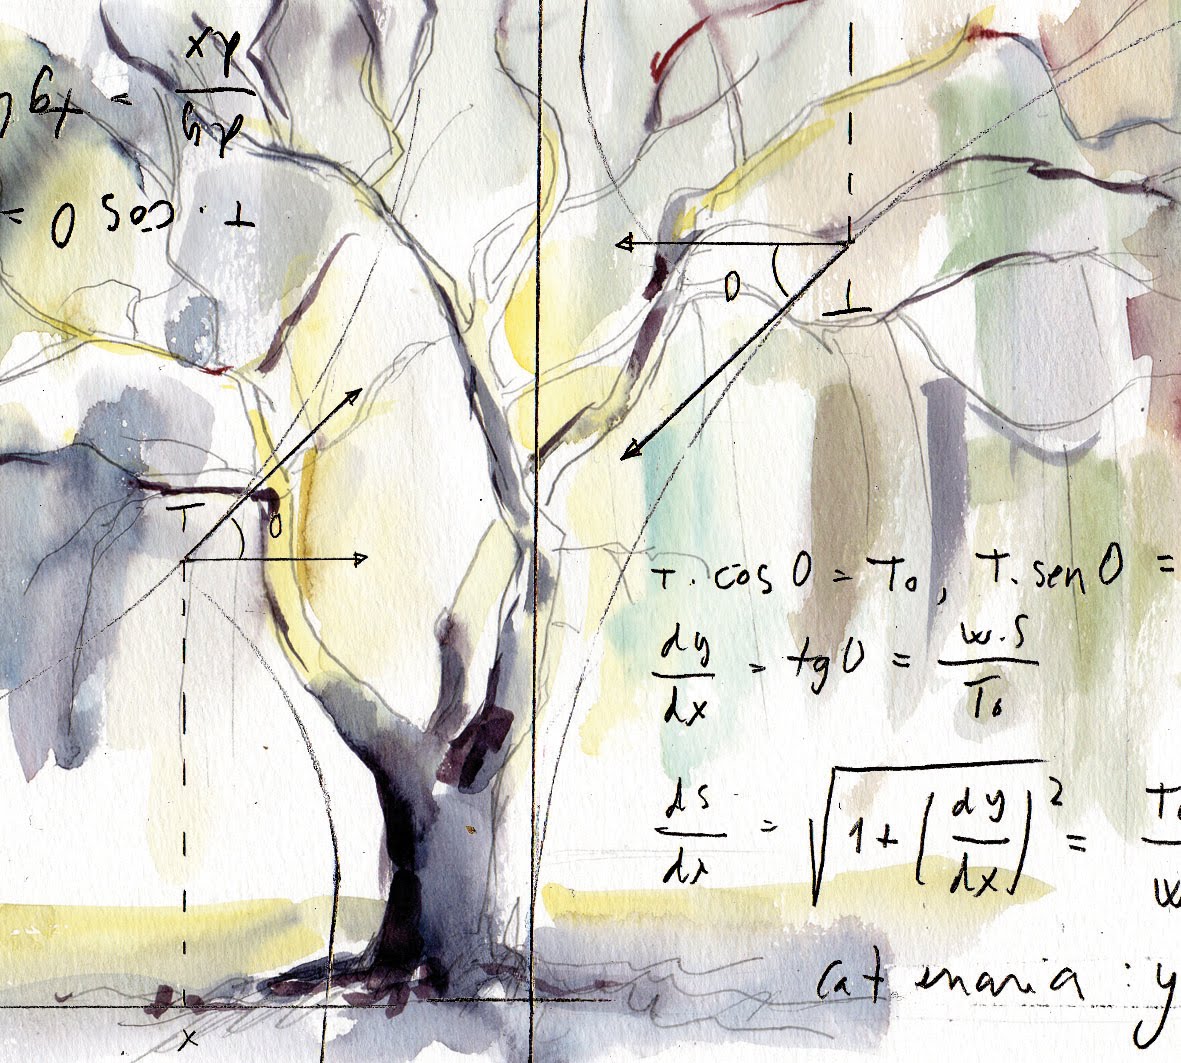 T . cos 0 =
dy/dx = tg 0
0
T
T
0
T . cos 0 = T₀, T . sen 0 =
dy/dx = tg 0 = w.s/T₀
ds/dx = √1+(dy/dx)² =
catenaria : y
x